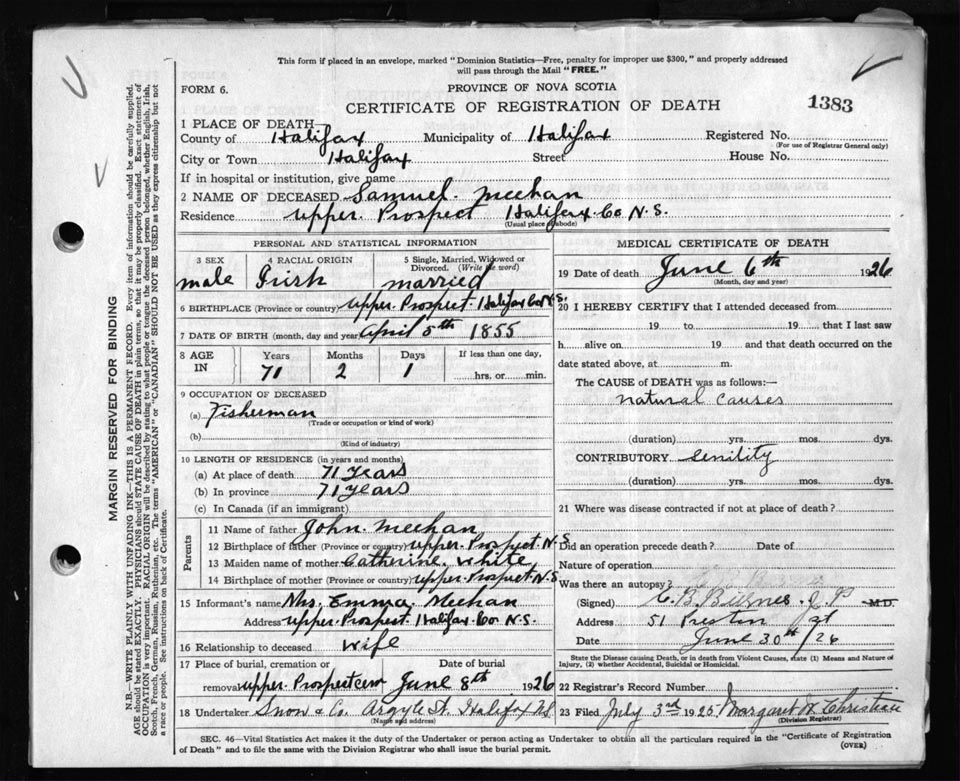 This form if placed in an envelope, marked "Dominion Statistics—Free, penalty for improper use $300," and properly addressed
will pass through the Mail "FREE."
FORM 6.
PROVINCE OF NOVA SCOTIA
CERTIFICATE OF REGISTRATION OF DEATH
1383
1 PLACE OF DEATH—
County of Halifax Municipality of Halifax Registered No.
(For use of Registrar General only)
City or Town Halifax Street House No.
If in hospital or institution, give name
2 NAME OF DECEASED Samuel Meehan
Residence Upper Prospect Halifax Co N.S.
(Usual place of abode)
PERSONAL AND STATISTICAL INFORMATION
3 SEX 4 RACIAL ORIGIN 5 Single, Married, Widowed or
Divorced. (Write the word)
male Irish married
6 BIRTHPLACE (Province or country) Upper Prospect Halifax Co N.S.
7 DATE OF BIRTH (month, day and year) April 5th 1855
8 AGE IN Years Months Days If less than one day,
71 2 1 hrs, or min.
9 OCCUPATION OF DECEASED
(a) Fisherman
(Trade or occupation or kind of work)
(b)
(Kind of industry)
10 LENGTH OF RESIDENCE (in years and months)
(a) At place of death 71 Years
(b) In province 71 Years
(c) In Canada (if an immigrant)
Parents
11 Name of father John Meehan
12 Birthplace of father (Province or country) Upper Prospect N.S
13 Maiden name of mother Catherine White
14 Birthplace of mother (Province or country) Upper Prospect N.S
15 Informant's name Mrs. Emma Meehan
Address Upper Prospect Halifax Co N.S
16 Relationship to deceased wife
17 Place of burial, cremation or Date of burial
removal Upper Prospect cem June 8th 1926
18 Undertaker Snow & Co. Argyle St. Halifax NS
(Name and address)
MEDICAL CERTIFICATE OF DEATH
19 Date of death June 6th 1926
(Month, day and year)
20 I HEREBY CERTIFY that I attended deceased from
19 to 19 that I last saw
h alive on 19 and that death occurred on the
date stated above, at m.
The CAUSE of DEATH was as follows:—
natural causes
(duration) yrs. mos. dys.
CONTRIBUTORY senility
(duration) yrs. mos. dys.
21 Where was disease contracted if not at place of death?
Did an operation precede death? Date of
Nature of operation
Was there an autopsy?
(Signed) J P M.D.
Address 51 Preston st
Date June 30th / 26
State the Disease causing Death, or in death from Violent Causes, state (1) Means and Nature of
Injury, (2) whether Accidental, Suicidal or Homicidal.
22 Registrar's Record Number
23 Filed July 3rd 1925 Margaret Christian
(Division Registrar)
SEC. 46—Vital Statistics Act makes it the duty of the Undertaker or person acting as Undertaker to obtain all the particulars required in the "Certificate of Registration
of Death" and to file the same with the Division Registrar who shall issue the burial permit.
(OVER)
MARGIN RESERVED FOR BINDING
N.B.—WRITE PLAINLY WITH UNFADING INK—THIS IS A PERMANENT RECORD. Every item of information should be carefully supplied.
AGE should be stated EXACTLY. PHYSICIANS should STATE CAUSE OF DEATH in plain terms, so that it may be properly classified. Exact statement of
OCCUPATION is very important. RACIAL ORIGIN will be described by stating to what people or tongue the deceased person belonged, whether English, Irish,
Scotch, French, German, Russian, Ruthenian, etc. The terms "AMERICAN" or "CANADIAN" SHOULD NOT BE USED as they express citizenship but not
a race or people. See instructions on back of Certificate.